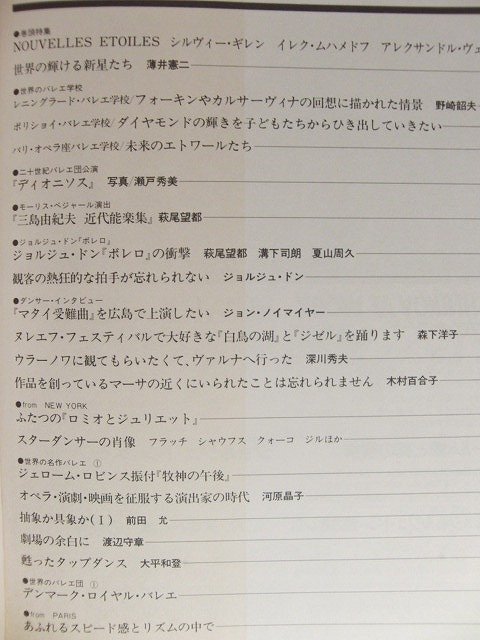 ●巻頭特集
NOUVELLES ETOILES シルヴィー・ギレン イレク・ムハメドフ アレクサンドル・ヴェ
世界の輝ける新星たち 薄井憲二
●世界のバレエ学校
レニングラード・バレエ学校/フォーキンやカルサーヴィナの回想に描かれた情景 野崎韶夫
ボリショイ・バレエ学校/ダイヤモンドの輝きを子どもたちからひき出していきたい
パリ・オペラ座バレエ学校/未来のエトワールたち
●二十世紀バレエ団公演
『ディオニソス』 写真/瀬戸秀美
●モーリス・ベジャール演出
『三島由紀夫 近代能楽集』 萩尾望都
●ジョルジュ・ドン『ボレロ』
ジョルジュ・ドン『ボレロ』の衝撃 萩尾望都 溝下司朗 夏山周久
観客の熱狂的な拍手が忘れられない ジョルジュ・ドン
●ダンサー・インタビュー
『マタイ受難曲』を広島で上演したい ジョン・ノイマイヤー
ヌレエフ・フェスティバルで大好きな『白鳥の湖』と『ジゼル』を踊ります 森下洋子
ウラーノワに観てもらいたくて、ヴァルナへ行った 深川秀夫
作品を創っているマーサの近くにいられたことは忘れられません 木村百合子
●from NEW YORK
ふたつの『ロミオとジュリエット』
スターダンサーの肖像 フラッチ シャウフス クォーコ ジルほか
●世界の名作バレエ ①
ジェローム・ロビンス振付『牧神の午後』
オペラ・演劇・映画を征服する演出家の時代 河原晶子
抽象か具象か(I) 前田 允
劇場の余白に 渡辺守章
甦ったタップダンス 大平和登
●世界のバレエ団 ①
デンマーク・ロイヤル・バレエ
●from PARIS
あふれるスピード感とリズムの中で